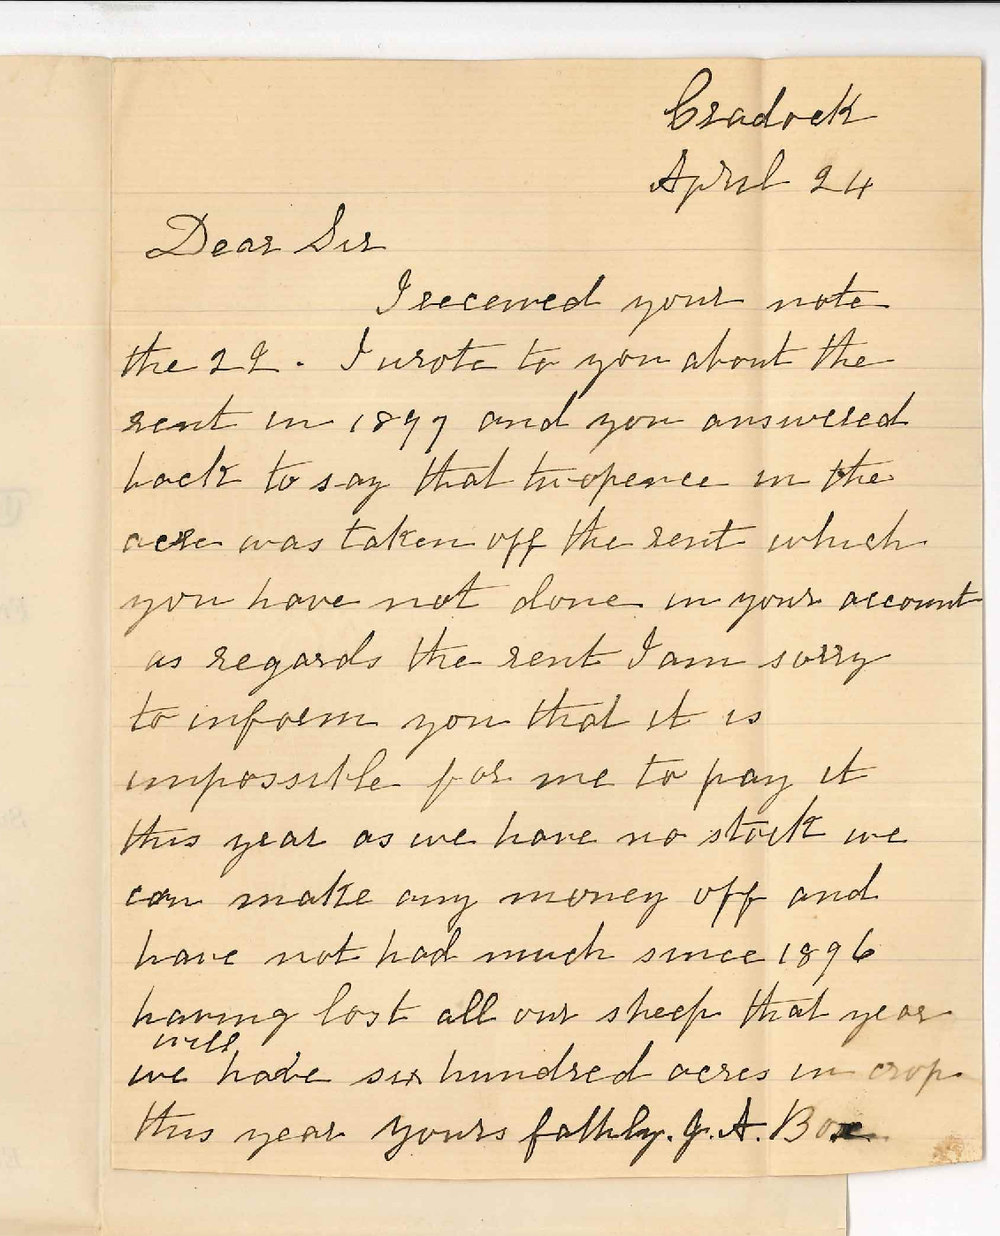 Cradock
April 24
Dear Sir
I received your note
the 22. I wrote to you about the
rent in 1897 and you answered
back to say that twopence in the
acre was taken off the rent which
you have not done in your account
as regards the rent I am sorry
to inform you that it is
impossible for me to pay it
this year as we have no stock we
can make any money off and
have not had much since 1896
having lost all our sheep that year
will
we have six hundred acres in crop
this year yours fathly. J. A. Box